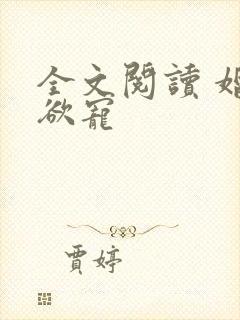 全文閱讀 婚
欲寵
賈婷